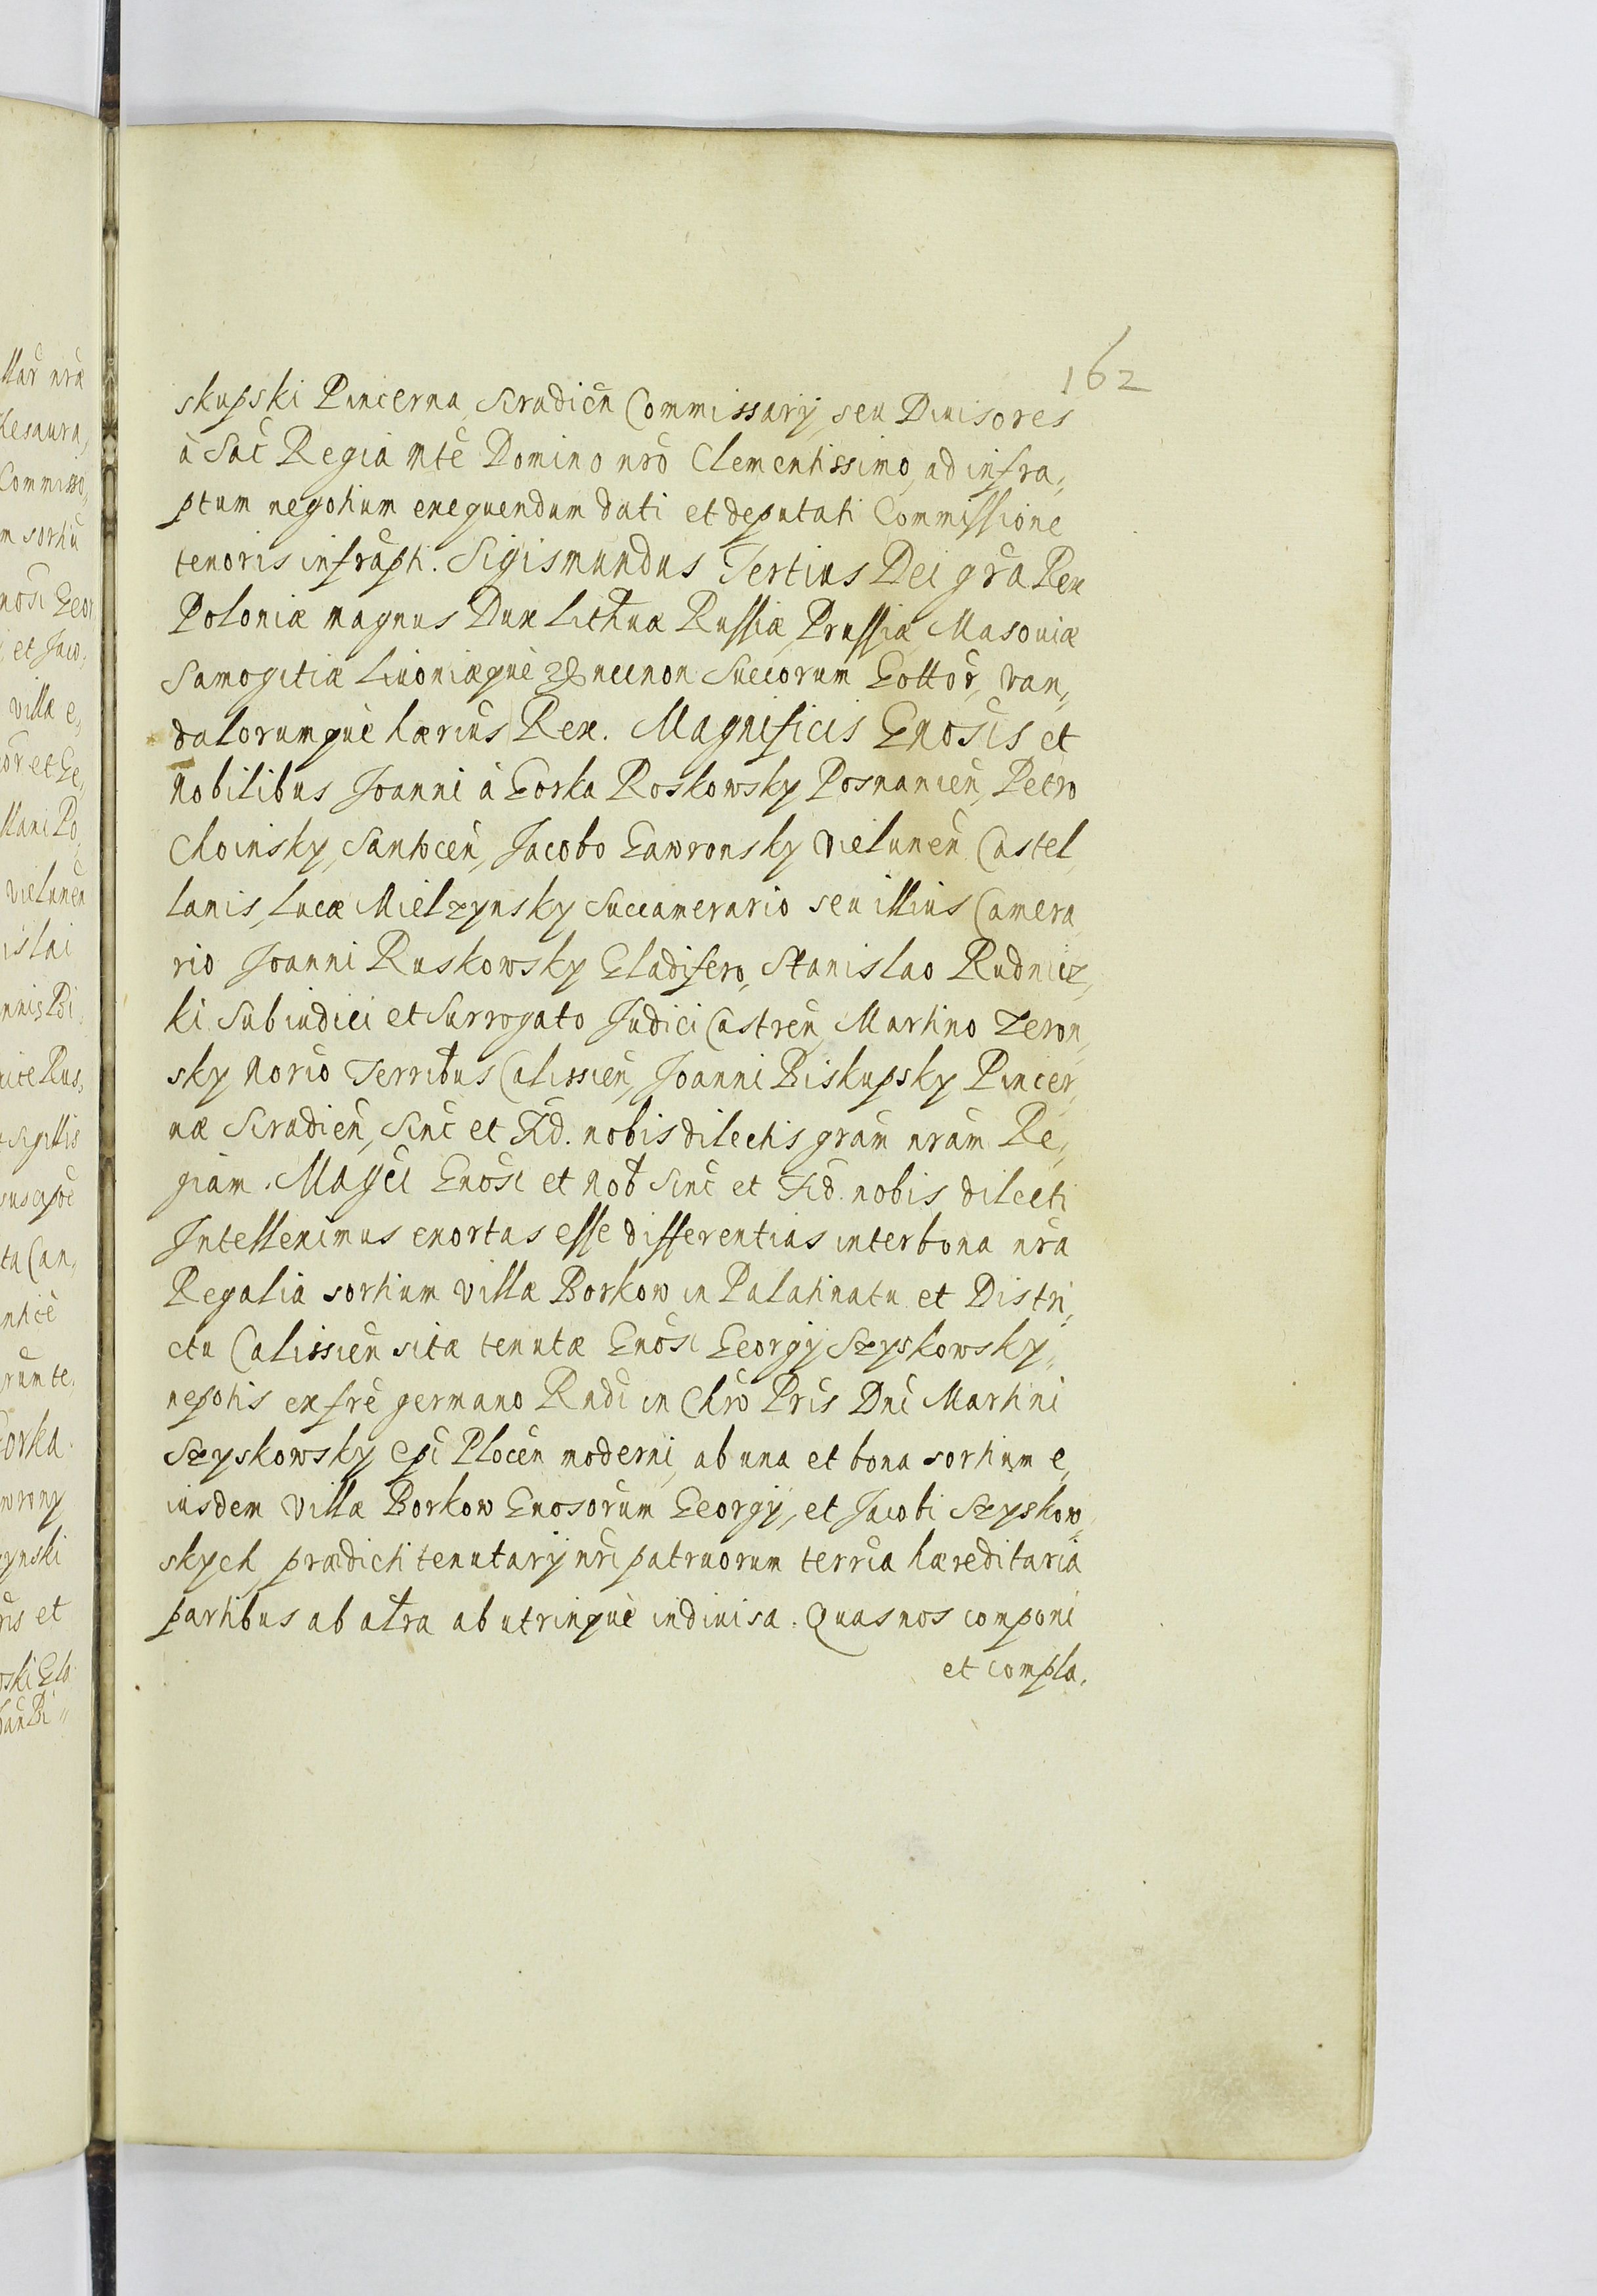 162
skupski Pincerna, Siradień Commissarij seu Diuisores
à Sac̃ Regia Mte̅ Domino nr̅o Clementissimo, ad infra,
ptum negotium exequendum dati et deputati Commissione
tenoris infrapti. Sigismundus Tertius Dei gr̅a Rex
Poloniæ magnus Dux Lithuæ Russiæ Prussiæ, Masouiæ
Samogitiæ Liuoniæque necnon Suecorum Gottor̅, Van,
dalorumque hærius Rex. Magnificis Gnosis et
Nobilibus Joanni à Gorka Roskowsky Posnanień, Petro
Choinsky, Santoceń, Jacobo Gawronsky Vieluneń Castel,
lanis, Lucæ Mielzynsky Succamerario seu illius Camera,
rio Joanni Ruskowsky Gladifero, Stanislao Rudnicz,
ki Subiudici et Surrogato Judici Castreń, Martino Zeron,
sky Norio Terribus Calissień, Joanni Biskupsky Pincer,
næ Siradień, Sinc̃ et Fid. nobis dilectis gram̃ nram̃ Re,
giam. Magc̃i Gnosi et Nob Sinc̃ et Fid. nobis dilecti
Intelleximus exortas esse differentias inter bona nr̅a
Regalia sortium villæ Borkow in Palatinatu et Distri,
ctu Calissień sitæ tenutæ Gnosi Georgij Szyskowsky,
nepotis ex fr̅e germano Rndi in Chr̅o Pr̅is Dn̅i Martini
Szyskowsky Ep̅i Ploceń moderni, ab una et bona sortium e,
iusdem Villæ Borkow Gnosorum Georgij, et Jacobi Szyskow,
skych prædicti tenutarij nr̅i patruorum terr̅ia hæreditaria
partibus ab altra ab utrinque indiuisa. Quas nos componi
et compla,